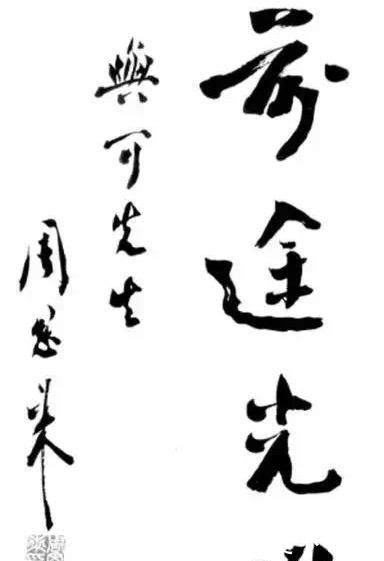 前途光
與可先生
周恩来